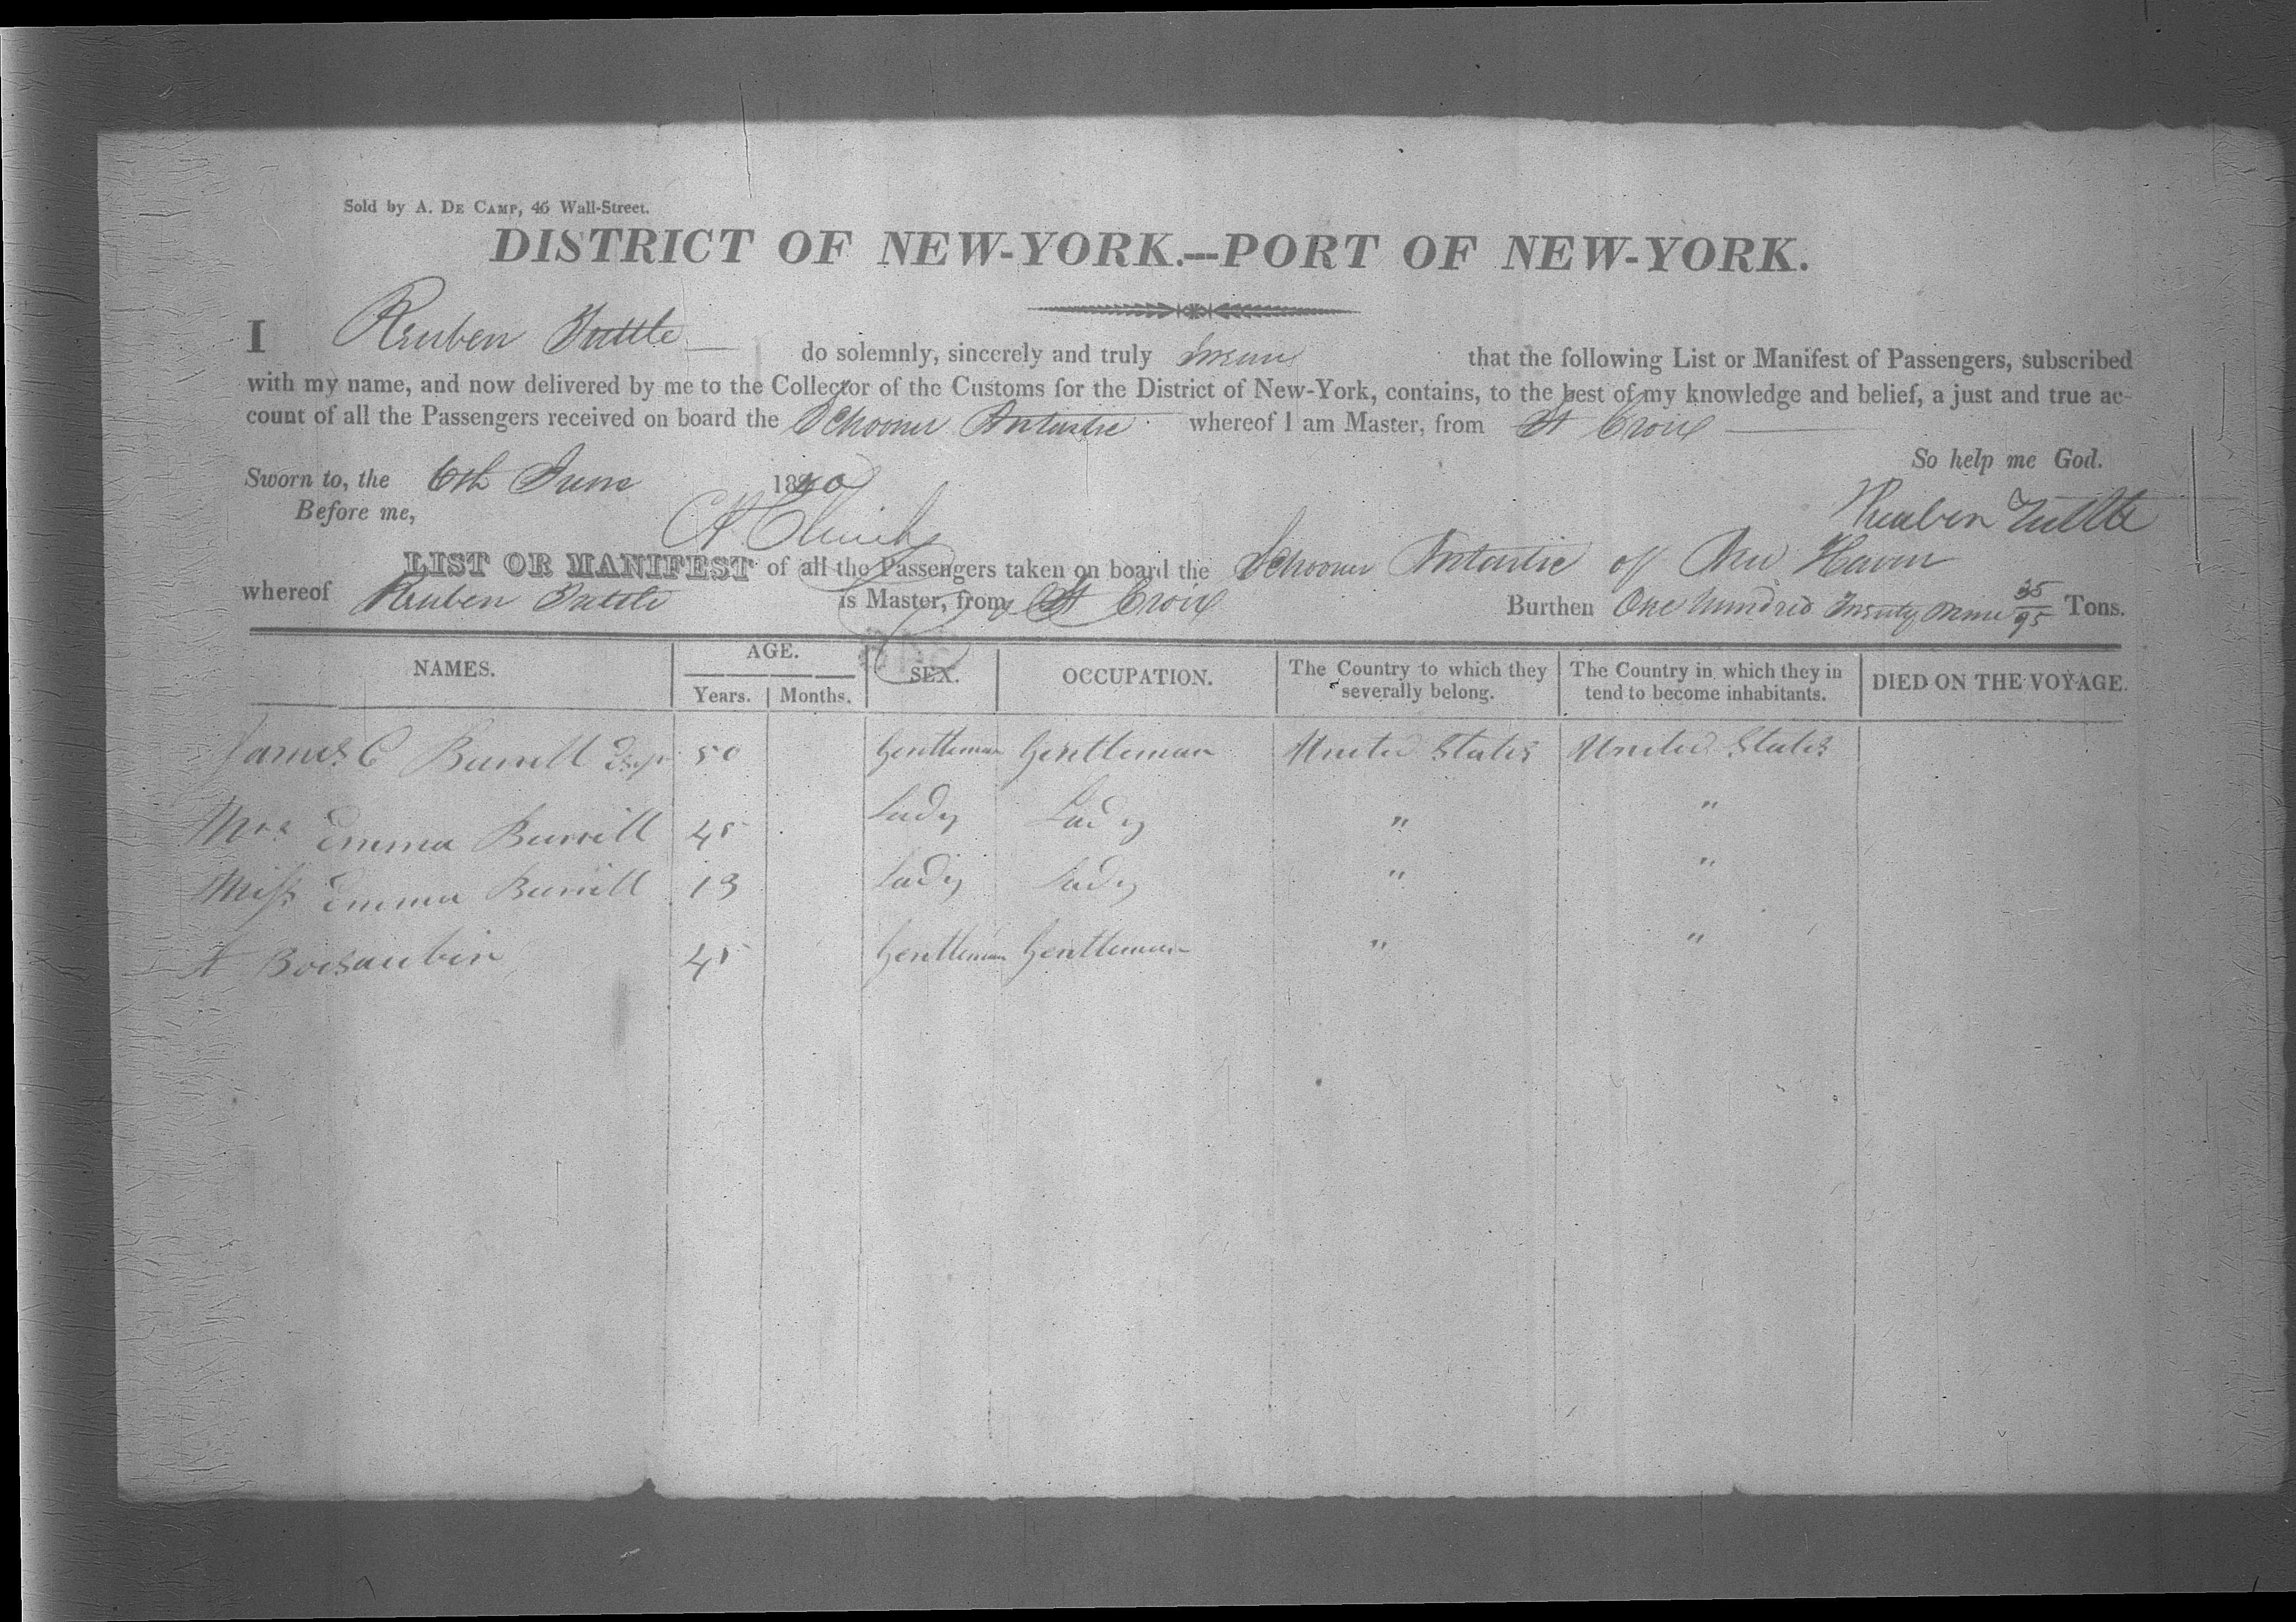 Sold by A. DE CAMP, 46 Wall-Street.
DISTRICT OF NEW-YORK.---PORT OF NEW-YORK.
I Reuben Tuttle do solemnly, sincerely and truly Swear that the following List or Manifest of Passengers, subscribed
with my name, and now delivered by me to the Collector of the Customs for the District of New-York, contains, to the best of my knowledge and belief, a just and true ac-
count of all the Passengers received on board the Schooner Antartic whereof I am Master, from St Croix
So help me God.
Sworn to, the 6th June 1840
Before me,
Reuben Tuttle
LIST OR MANIFEST of all the Passengers taken on board the Schooner Antartic of New Haven
whereof Reuben Tuttle is Master, from St Croix Burthen One Hundred Twenty Nine 35/95 Tons.
NAMES. AGE. Years. Months. SEX. OCCUPATION. The Country to which they severally belong. The Country in which they in tend to become inhabitants. DIED ON THE VOYAGE.
James C Burrill 50 Gentleman Gentleman United States United States
Mrs Emma Burrill 45 Lady Lady " "
Miss Emma Burrill 13 Lady Lady " "
A Boisaubin 45 Gentleman Gentleman " "